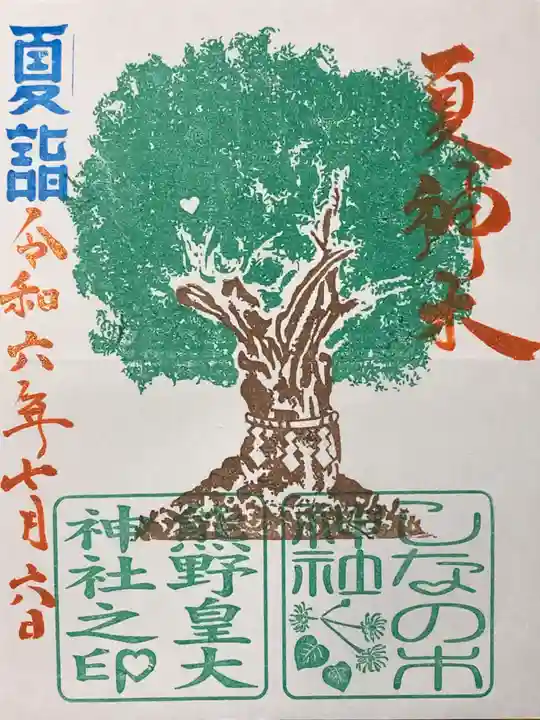 夏神木
夏詣
令和六年七月六日
しなの木
神社
熊野皇大
神社之印